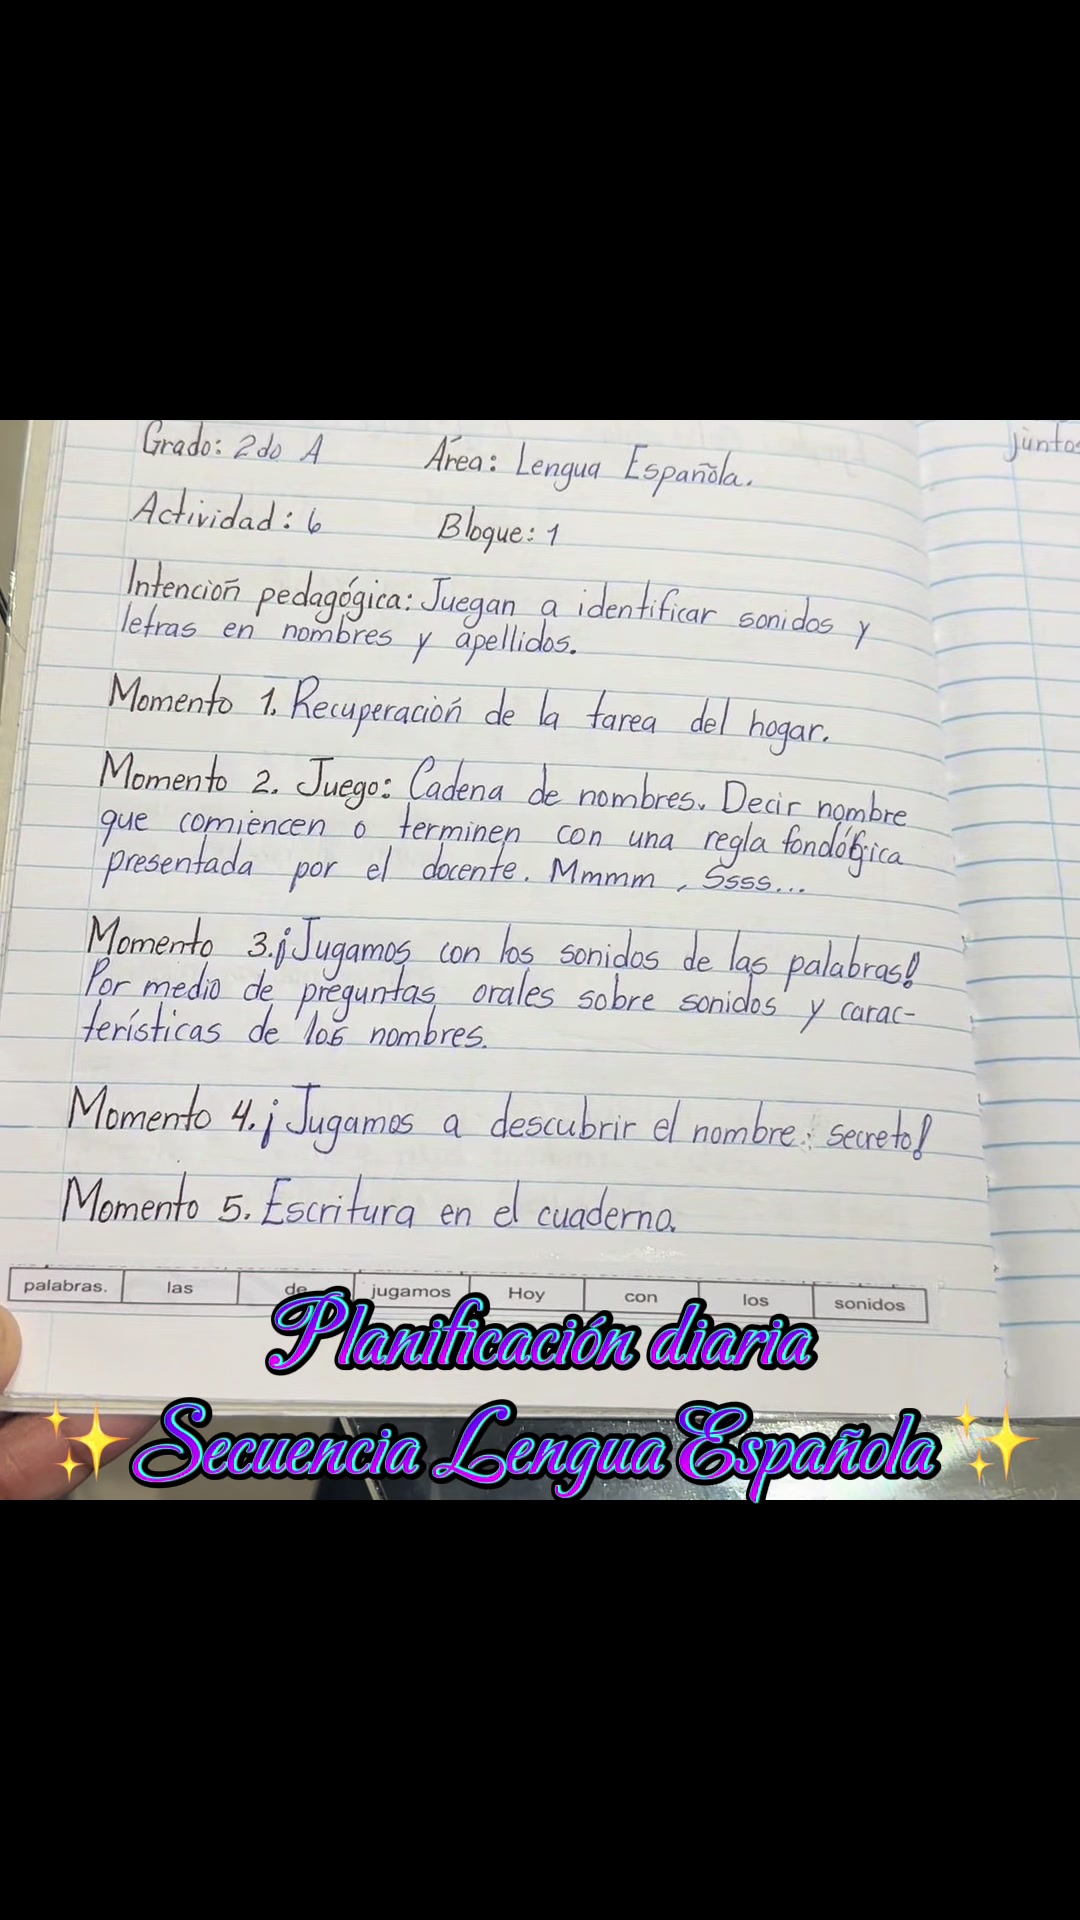 Grado: 2do A Área: Lengua Española.
juntos
Actividad: 6 Bloque: 1
Intención pedagógica: Juegan a identificar sonidos y
letras en nombres y apellidos.
Momento 1. Recuperación de la tarea del hogar.
Momento 2. Juego: Cadena de nombres. Decir nombre
que comiencen o terminen con una regla
presentada por el docente. Mmmm, Ssss...
Momento 3. ¡Jugamos con los sonidos de las palabras!
Por medio de preguntas orales sobre sonidos y carac-
terísticas de los nombres.
Momento 4. ¡Jugamos a descubrir el nombre secreto!
Momento 5. Escritura en el cuaderno.
palabras. las de jugamos Hoy con los sonidos
Planificación diaria
✨Secuencia Lengua Española✨